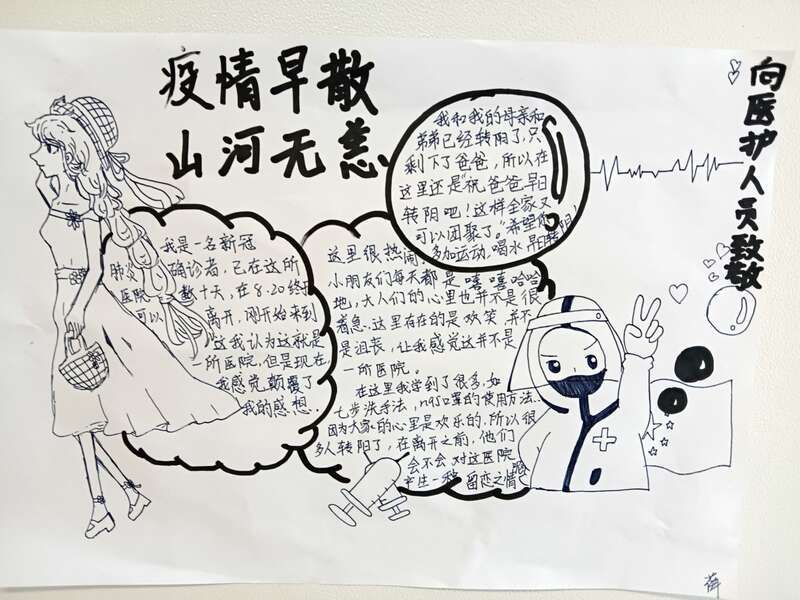 疫情早散
山河无恙
向医护人员致敬
我和我的母亲和
弟弟已经转阴了，只
剩下了爸爸，所以在
这里还是"祝爸爸早日
转阴吧！这样全家又
可以团聚了。"希望你
多加运动，喝水，早日转阴，
我是一名新冠
肺炎确诊者，已在这所
医院 数十天，在8.20终于
可以离开，刚开始来到
这我认为这就是
所医院，但是现在，
我感觉颠覆了
我的感想．
这里很热闹，
小朋友们每天都是嘻嘻哈哈
地，大人们的心里也并不是很
着急．这里存在的是欢笑，并不
是沮丧，让我感觉这并不是
一所医院。
在这里我学到了很多，如
七步洗手法，n95口罩的使用方法．．
因为大家的心里是欢乐的，所以很
多人转阴了，在离开之前，他们
会不会对这医院
产生一种留恋之情感